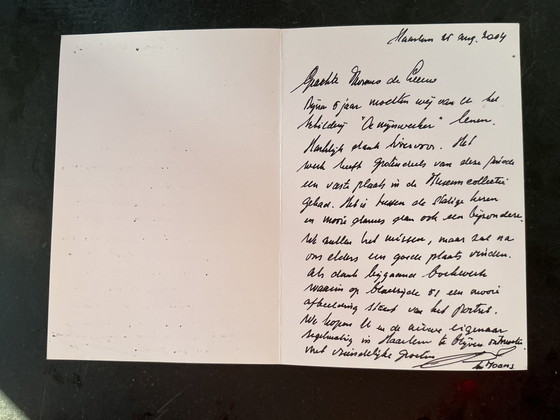 Haarlem 25 aug. 2004
Geachte Thomas de Leeuw
Bijna 5 jaar mochten wij van U het
schilderij "De mijnwerker" lenen.
Hartelijk dank hiervoor. Het
werk heeft grotendeels van deze periode
een vaste plaats in de Museumcollectie
gehad. Het is tussen de statige heren
en mooie dames dan ook een bijzondere.
We zullen het missen, maar zal na
ons elders een goede plaats vinden.
Als dank bijgaande boekwerk
waarin op bladzijde 51 een mooie
afbeelding staat van het portret.
We hopen U en de nieuwe eigenaar
regelmatig in Haarlem te blijven ontmoeten
met vriendelijke groeten